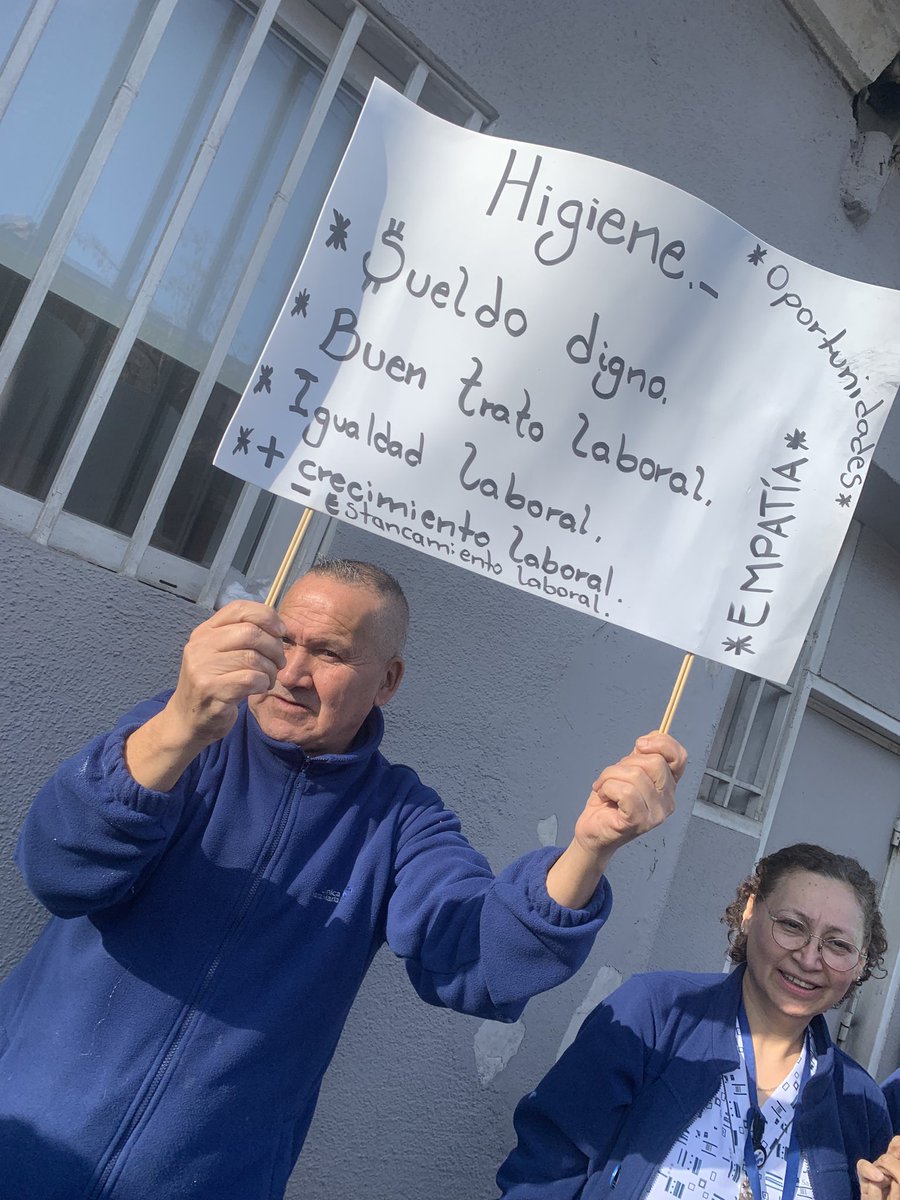 Higiene.-
* $ueldo digno.
* Buen trato laboral.
* Igualdad laboral.
* + crecimiento laboral.
- Estancamiento laboral.
* Oportunidades *
* EMPATÍA *